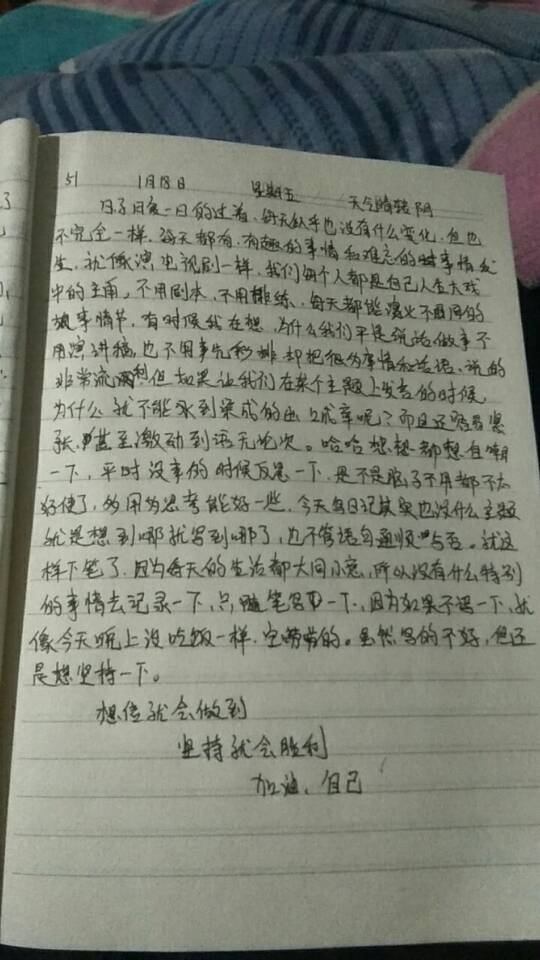 51 1月18日 星期五 天气晴转阴
日子日复一日的过着,每天似乎也没有什么变化,但也
不完全一样,每天都有,有趣的事情和难忘的事情发
生,就像演电视剧一样,我们每个人都是自己人生大戏
中的主角,不用剧本,不用排练,每天都能演出不同的
故事情节,有时候我在想,为什么我们平是说话做事不
用演讲稿,也不用事先彩排却把很多事情和话语,说的
非常流利但如果让我们在某个主题上发言的时候
为什么就不能水到渠成的出口成章呢?而且还容易紧
张,甚至激动到语无论次。哈哈想想都想自嘲
一下,平时没事的时候反思一下,是不是脑子不用都不太
好使了,多用多思考能好一些,今天每日记其实也没什么主题
就是想到哪就写到哪了,也不管语句通顺与否。就这
样下笔了,因为每天的生活都大同小意,所以没有什么特别
的事情去记录一下,只随笔写一下,因为如果不写一下,就
像今天晚上没吃饭一样,空唠唠的。虽然写的不好,但还
是想坚持一下。
相信就会做到
坚持就会胜利
加油、自己